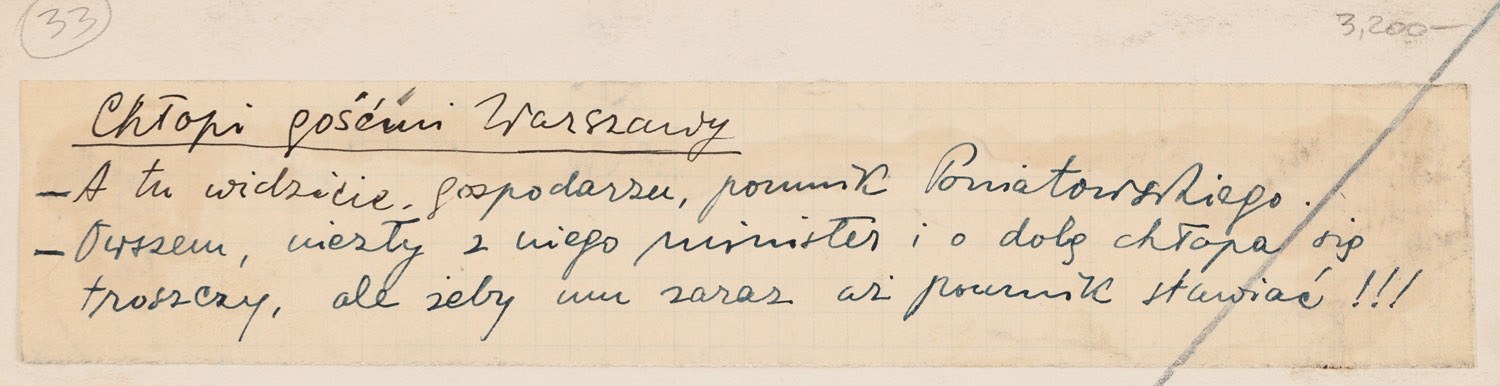 33
3,200—
Chłopi gośćmi Warszawy
– A tu widzicie, gospodarzu, pomnik Poniatowskiego.
– Owszem, niezły z niego minister i o dolę chłopa się
troszczy, ale żeby mu zaraz aż pomnik stawiać!!!